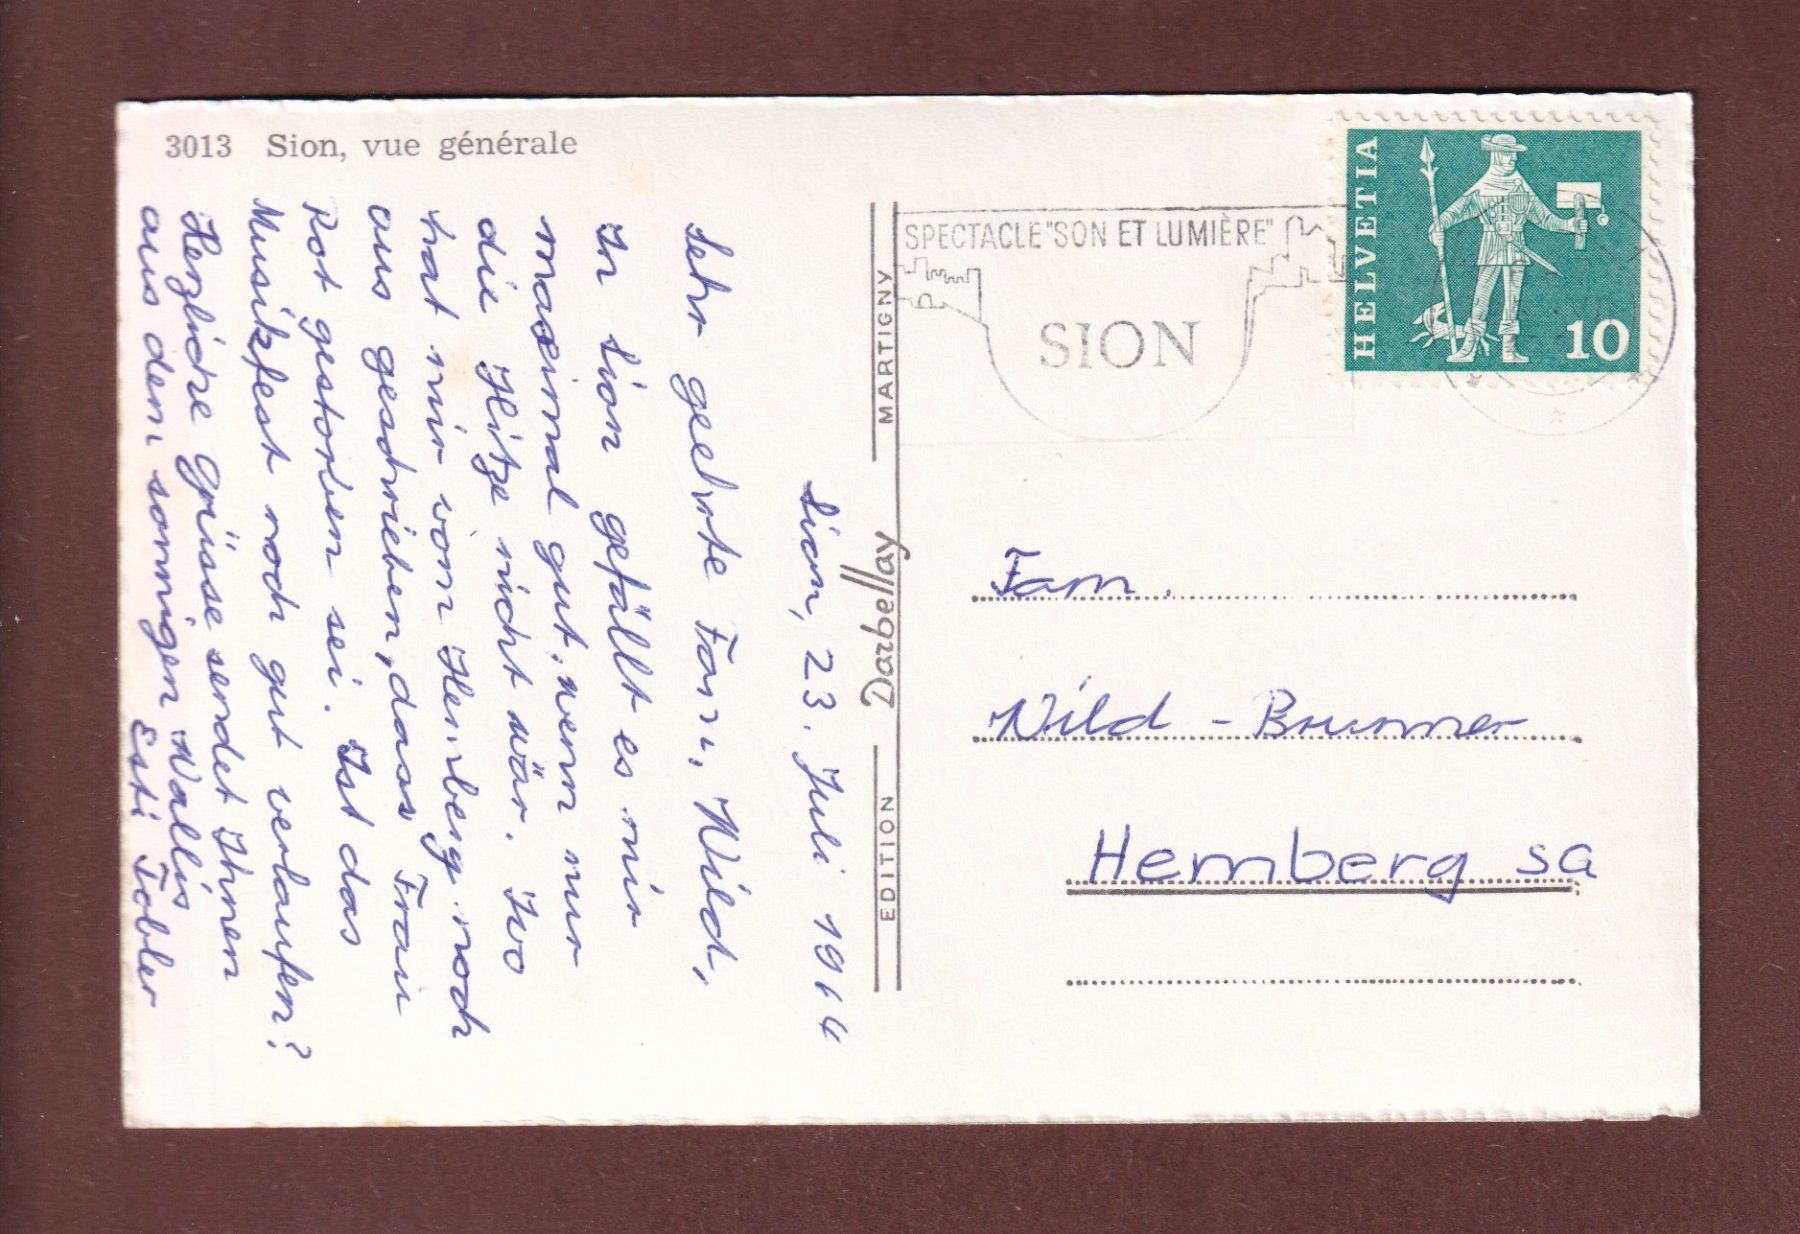 3013 Sion, vue générale
Sion, 23. Juli 1964
Sehr geehrte Fam. Wild,
In Sion gefällt es mir
maximal gut, wenn nur
die Hitze nicht wär. Ivo
hat mir von Hemberg noch
aus geschrieben, dass Frau
Rot gestorben sei. Ist das
Musikfest noch gut verlaufen?
Herzliche Grüsse sendet Ihnen
aus dem sonnigen Wallis
Esti Tobler
EDITION Darbellay MARTIGNY
SPECTACLE "SON ET LUMIÈRE"
SION
HELVETIA
10
Fam.
Wild - Brunner
Hemberg SG